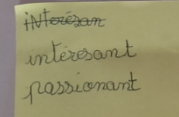 intérésan
intéresant
passionant